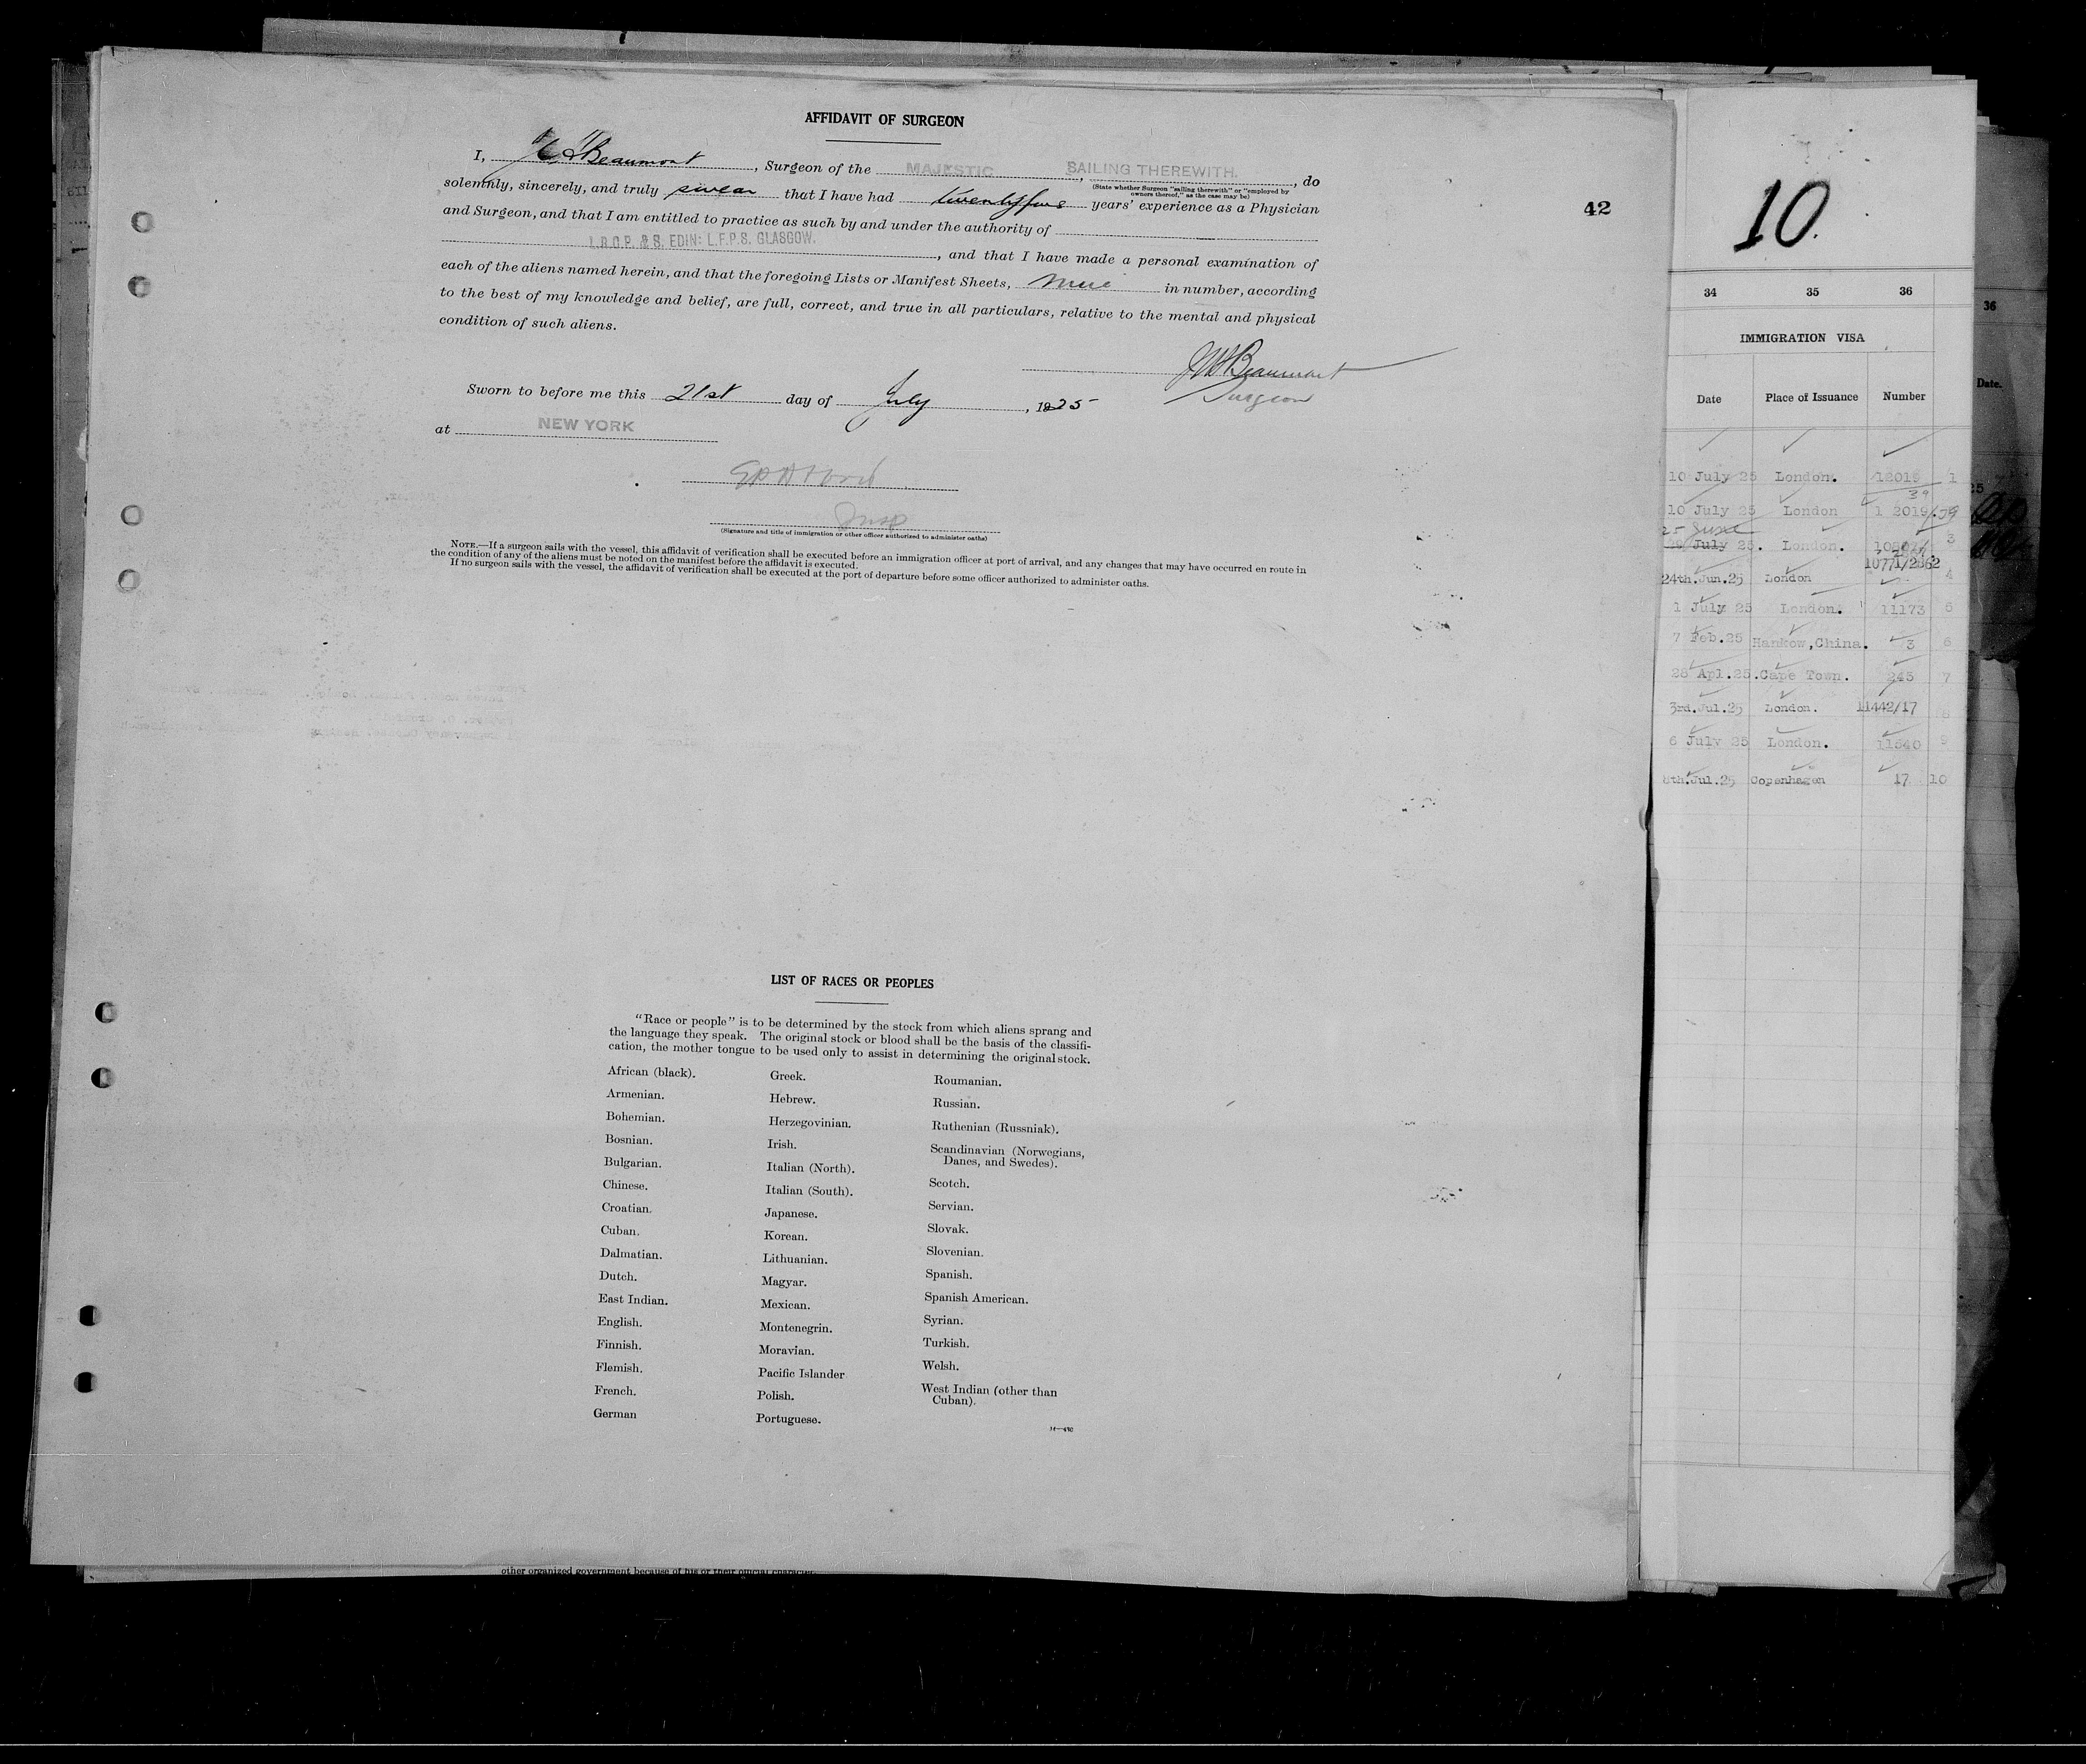 AFFIDAVIT OF SURGEON
I, Beaumont, Surgeon of the MAJESTIC, SAILING THEREWITH., do
(State whether Surgeon "sailing therewith" or "employed by
owners thereof," as the case may be)
solemnly, sincerely, and truly swear that I have had twentyfive years' experience as a Physician
and Surgeon, and that I am entitled to practice as such by and under the authority of
L.R.C.P. & S. EDIN: L.F.P.S. GLASGOW., and that I have made a personal examination of
each of the aliens named herein, and that the foregoing Lists or Manifest Sheets, in number, according
to the best of my knowledge and belief, are full, correct, and true in all particulars, relative to the mental and physical
condition of such aliens.
Beaumont
Surgeon
Sworn to before me this 21st day of July, 1925
at NEW YORK
Insp
(Signature and title of immigration or other officer authorized to administer oaths)
NOTE.—If a surgeon sails with the vessel, this affidavit of verification shall be executed before an immigration officer at port of arrival, and any changes that may have occurred en route in
the condition of any of the aliens must be noted on the manifest before the affidavit is executed.
If no surgeon sails with the vessel, the affidavit of verification shall be executed at the port of departure before some officer authorized to administer oaths.
42
LIST OF RACES OR PEOPLES
"Race or people" is to be determined by the stock from which aliens sprang and
the language they speak. The original stock or blood shall be the basis of the classifi-
cation, the mother tongue to be used only to assist in determining the original stock.
African (black).
Armenian.
Bohemian.
Bosnian.
Bulgarian.
Chinese.
Croatian.
Cuban.
Dalmatian.
Dutch.
East Indian.
English.
Finnish.
Flemish.
French.
German
Greek.
Hebrew.
Herzegovinian.
Irish.
Italian (North).
Italian (South).
Japanese.
Korean.
Lithuanian.
Magyar.
Mexican.
Montenegrin.
Moravian.
Pacific Islander
Polish.
Portuguese.
Roumanian.
Russian.
Ruthenian (Russniak).
Scandinavian (Norwegians,
Danes, and Swedes).
Scotch.
Servian.
Slovak.
Slovenian.
Spanish.
Spanish American.
Syrian.
Turkish.
Welsh.
West Indian (other than
Cuban).
other organized government because of his or their official character.
10.
34 35 36
IMMIGRATION VISA
Date Place of Issuance Number
10 July 25 London. 12019 1
39
10 July 25 London 1 2019/39
25 June
July 25. London. 3
10771/2862
24th.Jun.25 London 4
1 July 25 London. 11173 5
7 Feb.25 Hankow,China. 3 6
28 Apl.25. Cape Town. 245 7
3rd.Jul.25 London. 11442/17 8
6 July 25 London. 11540 9
8th.Jul.25 Copenhagen 17 10
36
Date.
25